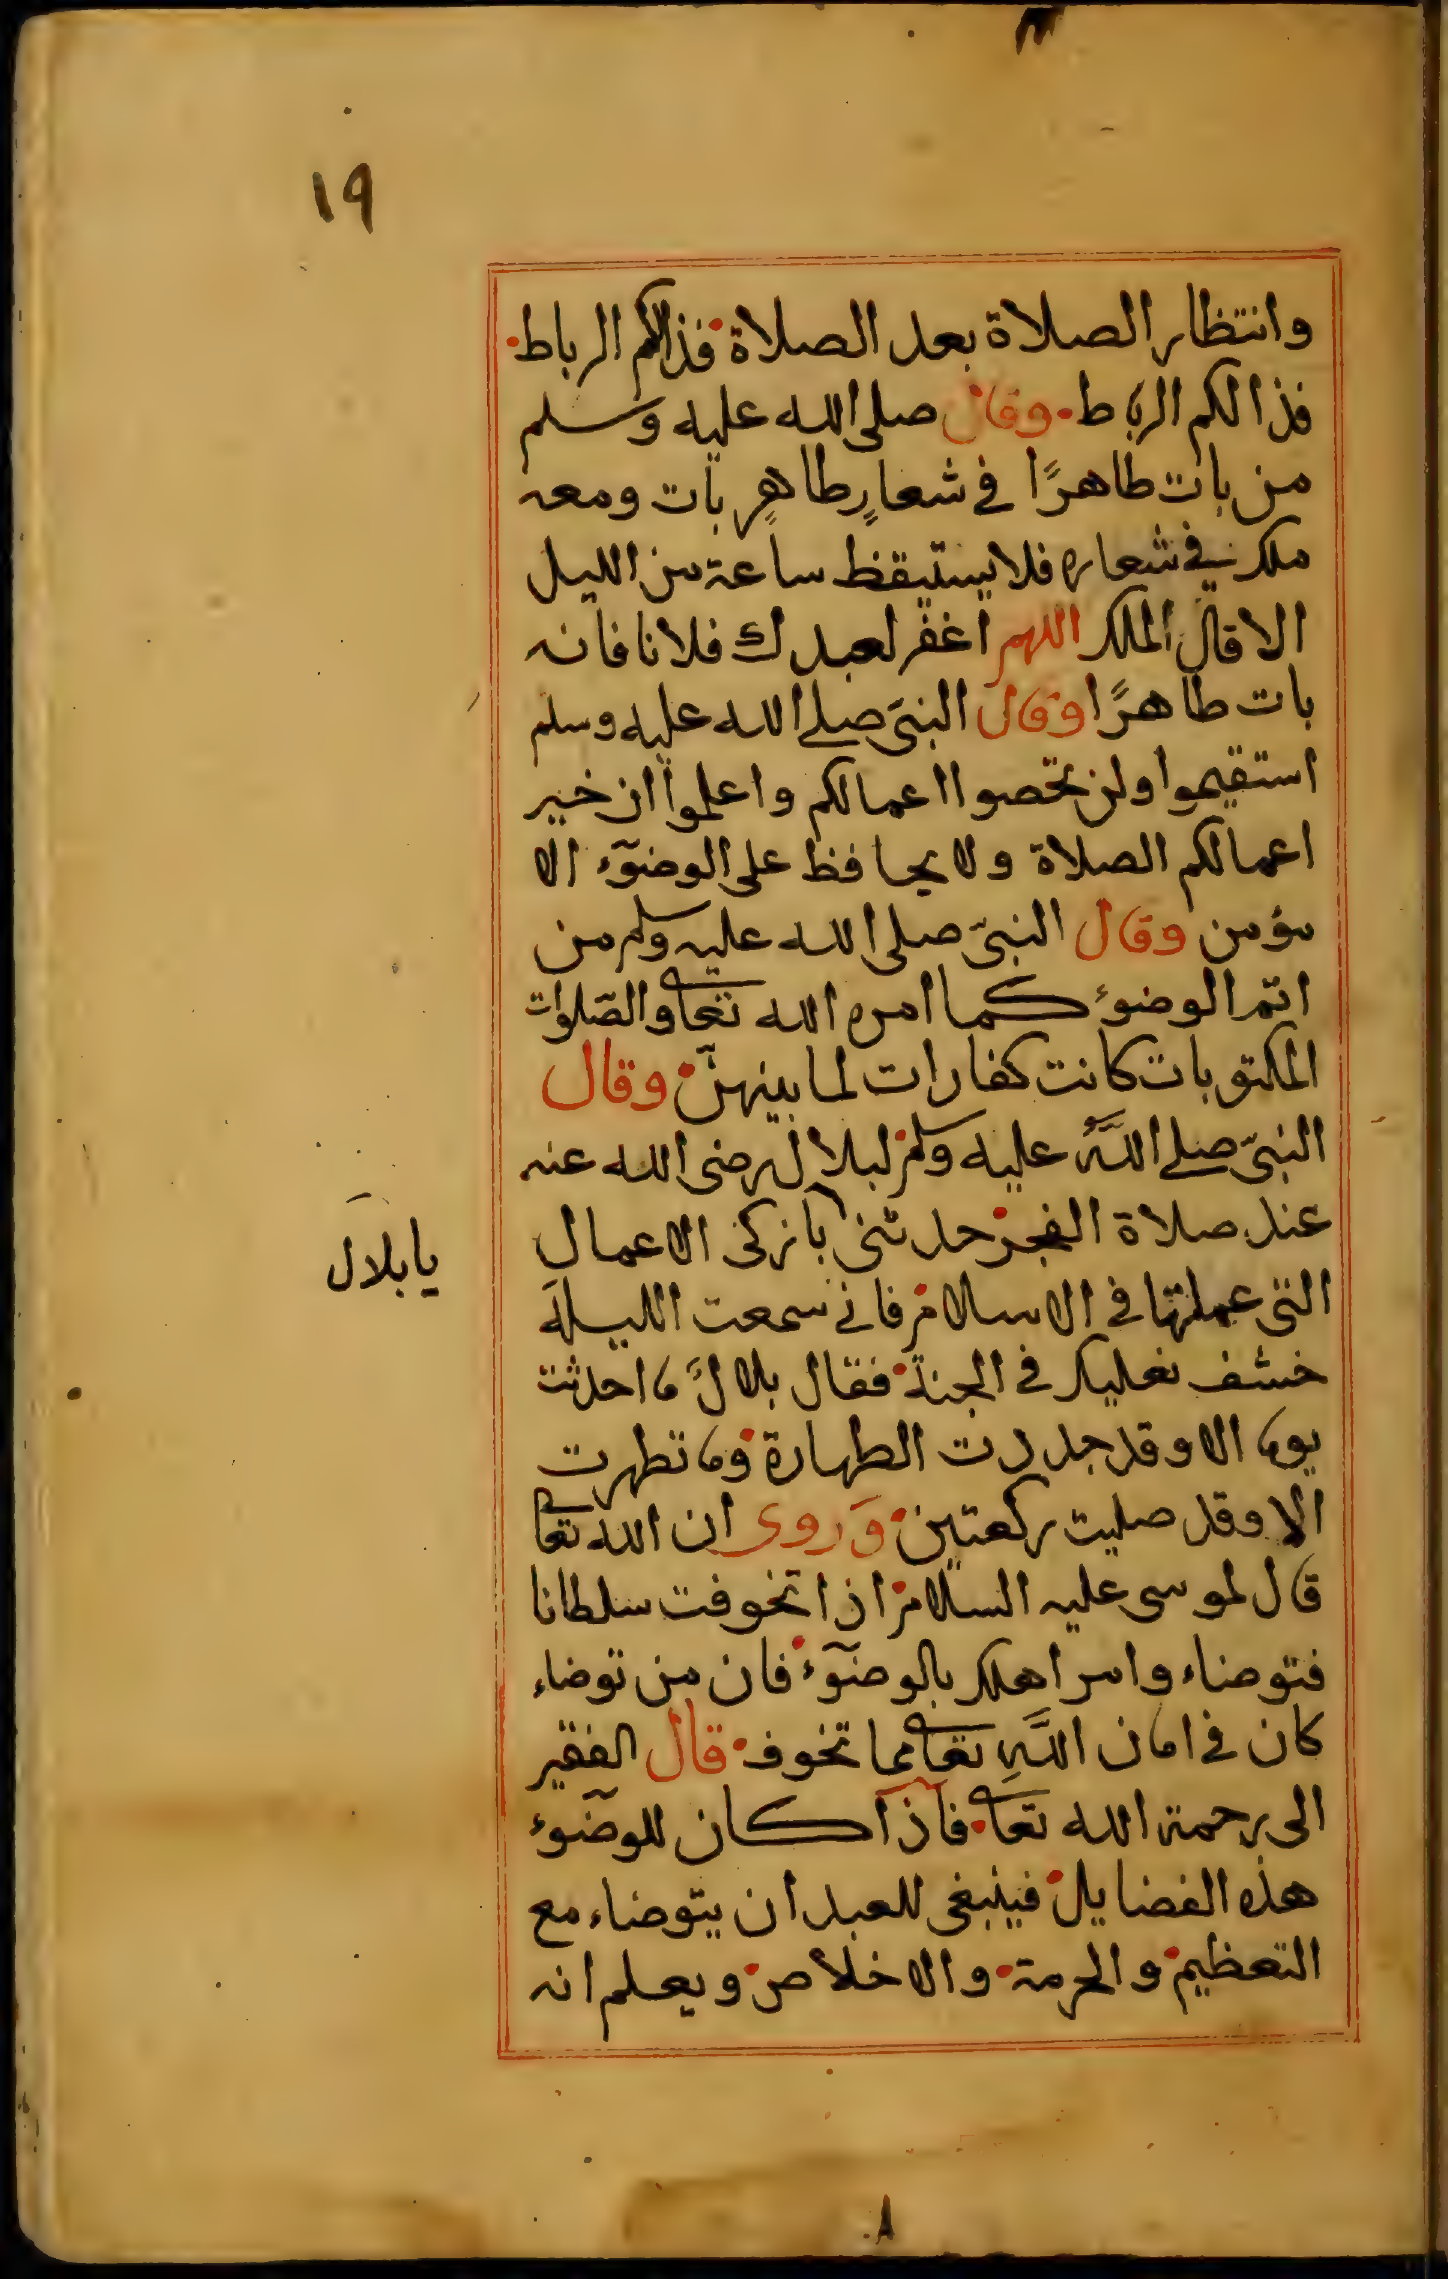 ١٩
وانتظار الصلاة بعد الصلاة فذالكم الرباط
فذالكم الرباط وقال صلى الله عليه وسلم
من بات طاهرًا في شعارٍ طاهرٍ بات ومعه
ملك في شعاره فلا يستيقظ ساعة من الليل
الا قال الملك اللهم اغفر لعبدك فلانا فانه
بات طاهرًا وقال النبي صلى الله عليه وسلم
استقيموا ولن تحصوا اعمالكم واعلموا ان خير
اعمالكم الصلاة ولا يحافظ على الوضوء الا
مؤمن وقال النبيّ صلى الله عليه وسلم من
اتم الوضوء كما امره الله تعا والصّلوات
المكتوبات كانت كفارات لما بينهنّ وقال
النبيّ صلى اللهُ عليه وسلم لبلال رضى الله عنه
عند صلاة الفجر حدثني بازكى الاعمال
يا بلال
التي عملتها في الاسلام فاني سمعت الليلة
خشف نعليك في الجنة فقال بلال ما احدثت
يوما الا وقد جددت الطهارة وما تطهرت
الا وقد صليت ركعتين وروى ان الله تعا
قال لموسى عليه السلام اذا تخوفت سلطانا
فتوضاء وامر اهلك بالوضوء فان من توضاء
كان في امان اللهِ تعا مما تخوف قال الفقير
الى رحمة الله تعا فاذا كان للوضوء
هذه الفضايل فينبغى للعبد ان يتوضاء مع
التعظيم والحرمة والاخلاص ويعلم انه
٨